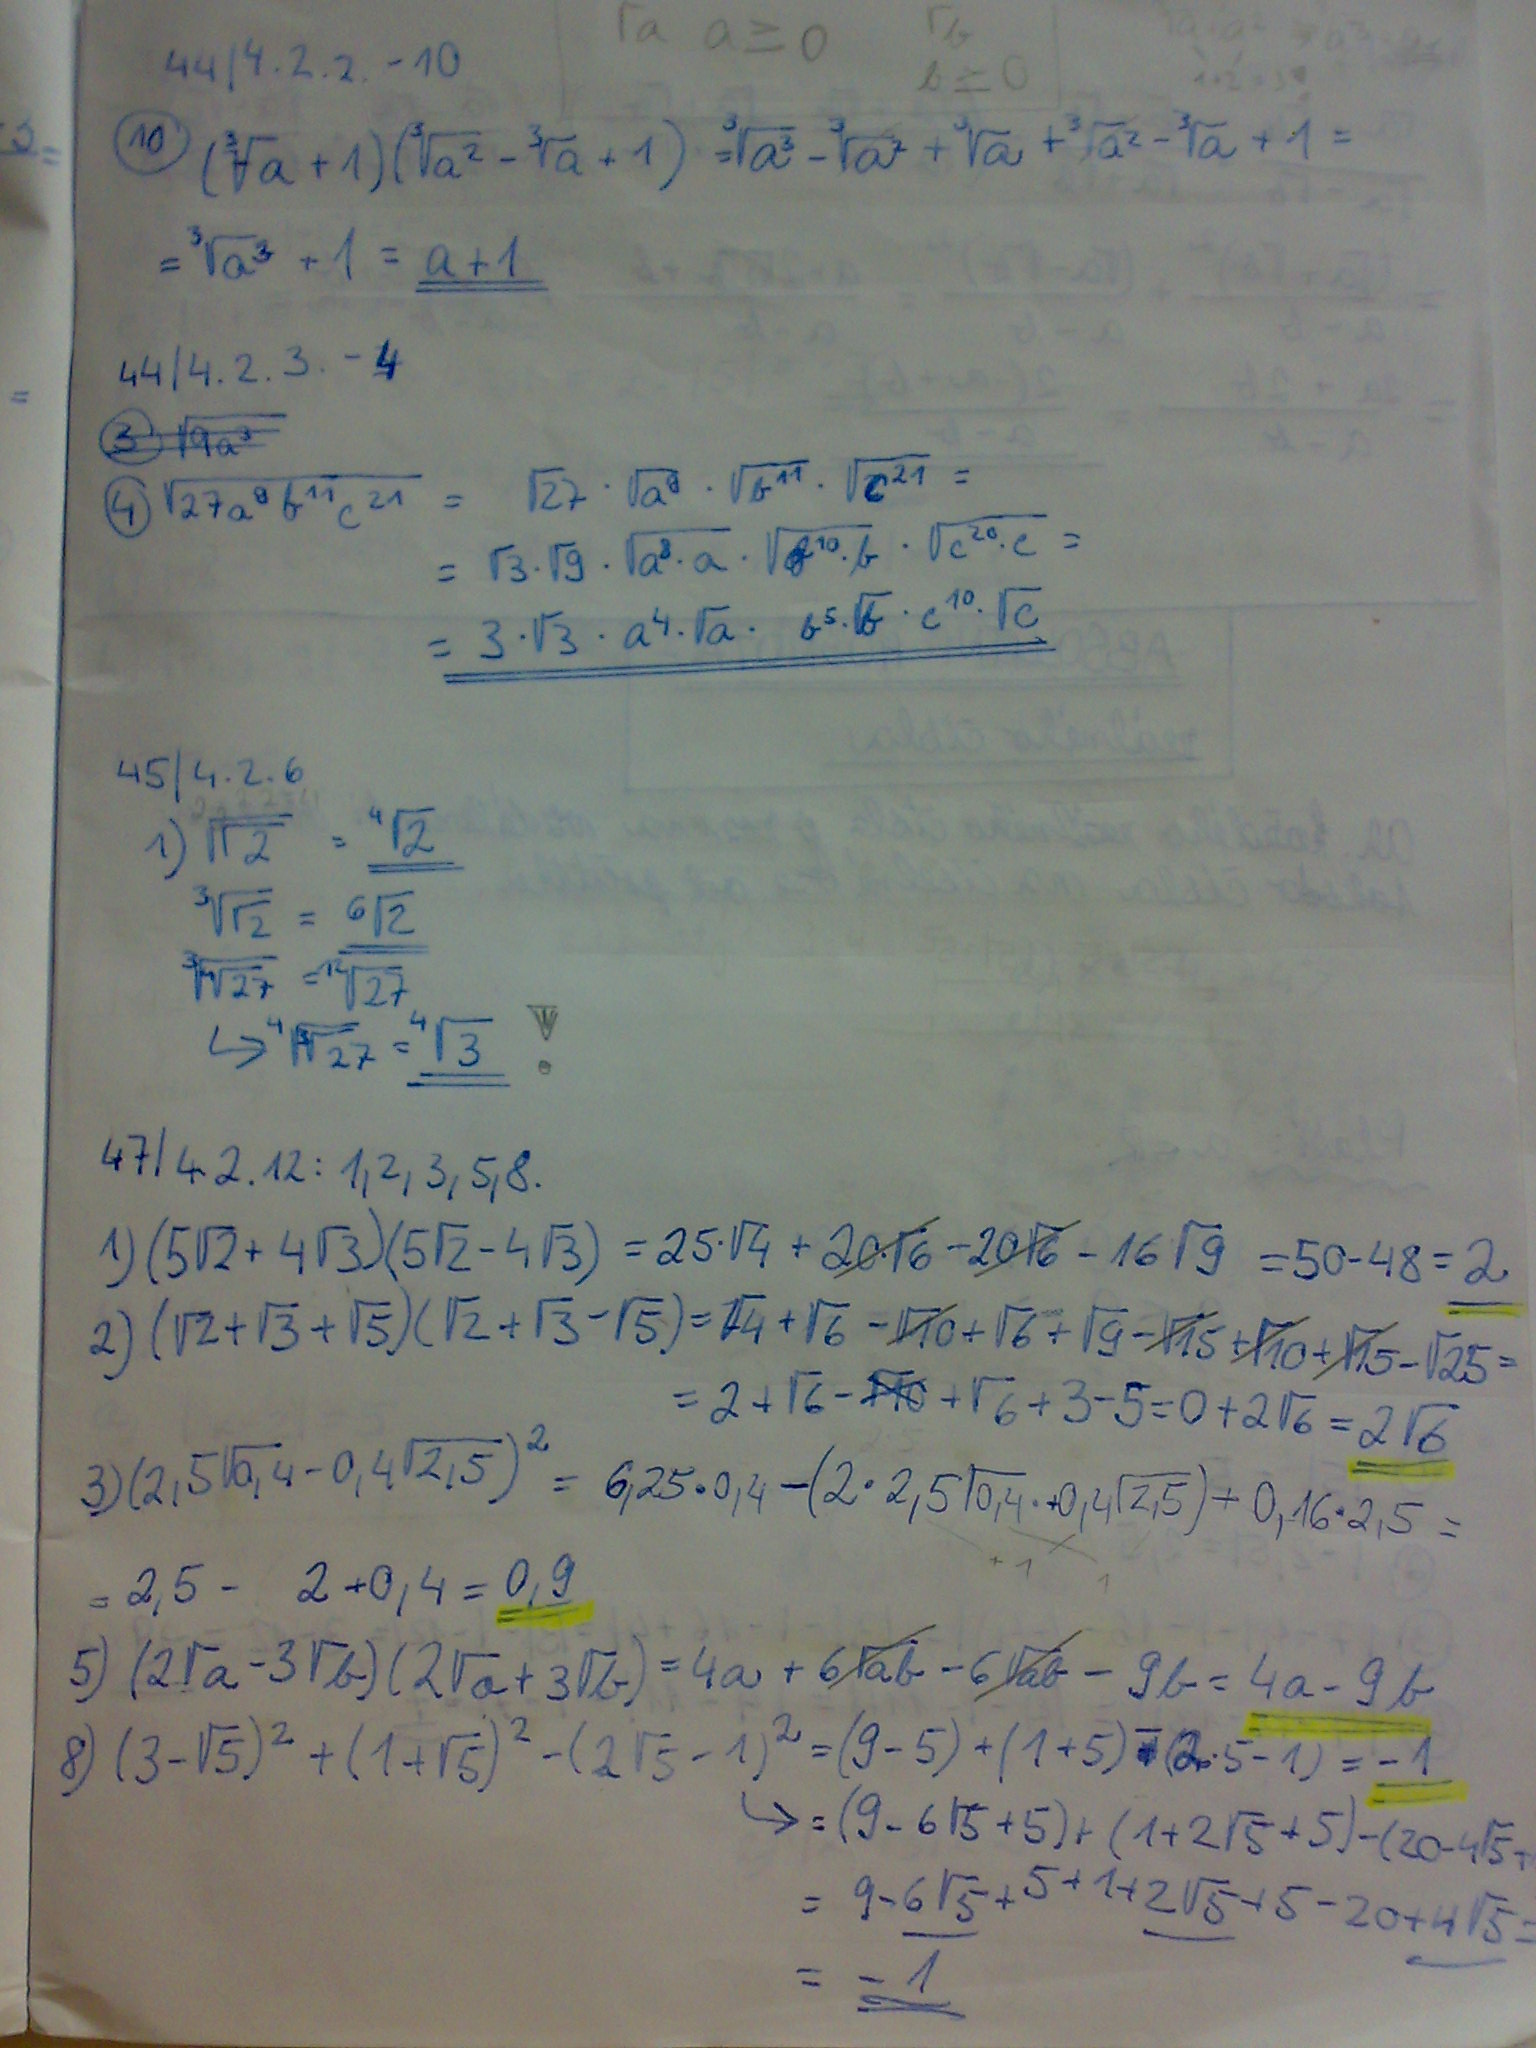 √a a ≥ 0 √b
b ≥ 0
44/4.2.2. - 10
⑩ (∛a + 1)(∛a² - ∛a + 1) = ∛a³ - ∛a² + ∛a + ∛a² - ∛a + 1 =
= ∛a³ + 1 = a+1
44/4.2.3. - 4
③ √9a³
④ √27a⁹b¹¹c²¹ = √27 · √a⁹ · √b¹¹ · √c²¹ =
= √3 · √9 · √a⁸·a · √b¹⁰·b · √c²⁰·c =
= 3 · √3 · a⁴ · √a · b⁵ · √b · c¹⁰ · √c
45/4.2.6
1) √√2 = ⁴√2
³√√2 = ⁶√2
³√⁴√27 = ¹²√27
↳ ⁴√³√27 = ⁴√3 !
47/4.2.12: 1,2,3,5,8.
1) (5√2 + 4√3)(5√2 - 4√3) = 25·√4 + 20·√6 - 20√6 - 16√9 = 50-48 = 2
2) (√2+√3+√5)(√2+√3-√5) = √4 + √6 - √10 + √6 + √9 - √15 + √10 + √15 - √25 =
= 2 + √6 - √10 + √6 + 3 - 5 = 0 + 2√6 = 2√6
3) (2,5√0,4 - 0,4√2,5)² = 6,25·0,4 - (2·2,5√0,4·0,4√2,5) + 0,16·2,5 =
+1 1
= 2,5 - 2 + 0,4 = 0,9
5) (2√a - 3√b)(2√a + 3√b) = 4a + 6√ab - 6√ab - 9b = 4a - 9b
8) (3-√5)² + (1+√5)² - (2√5 - 1)² = (9-5) + (1+5) - (2·5-1) = -1
↳ = (9 - 6√5 + 5) + (1+2√5+5) - (20-4√5+
= 9 - 6√5 + 5 + 1 + 2√5 + 5 - 20 + 4√5 =
= -1